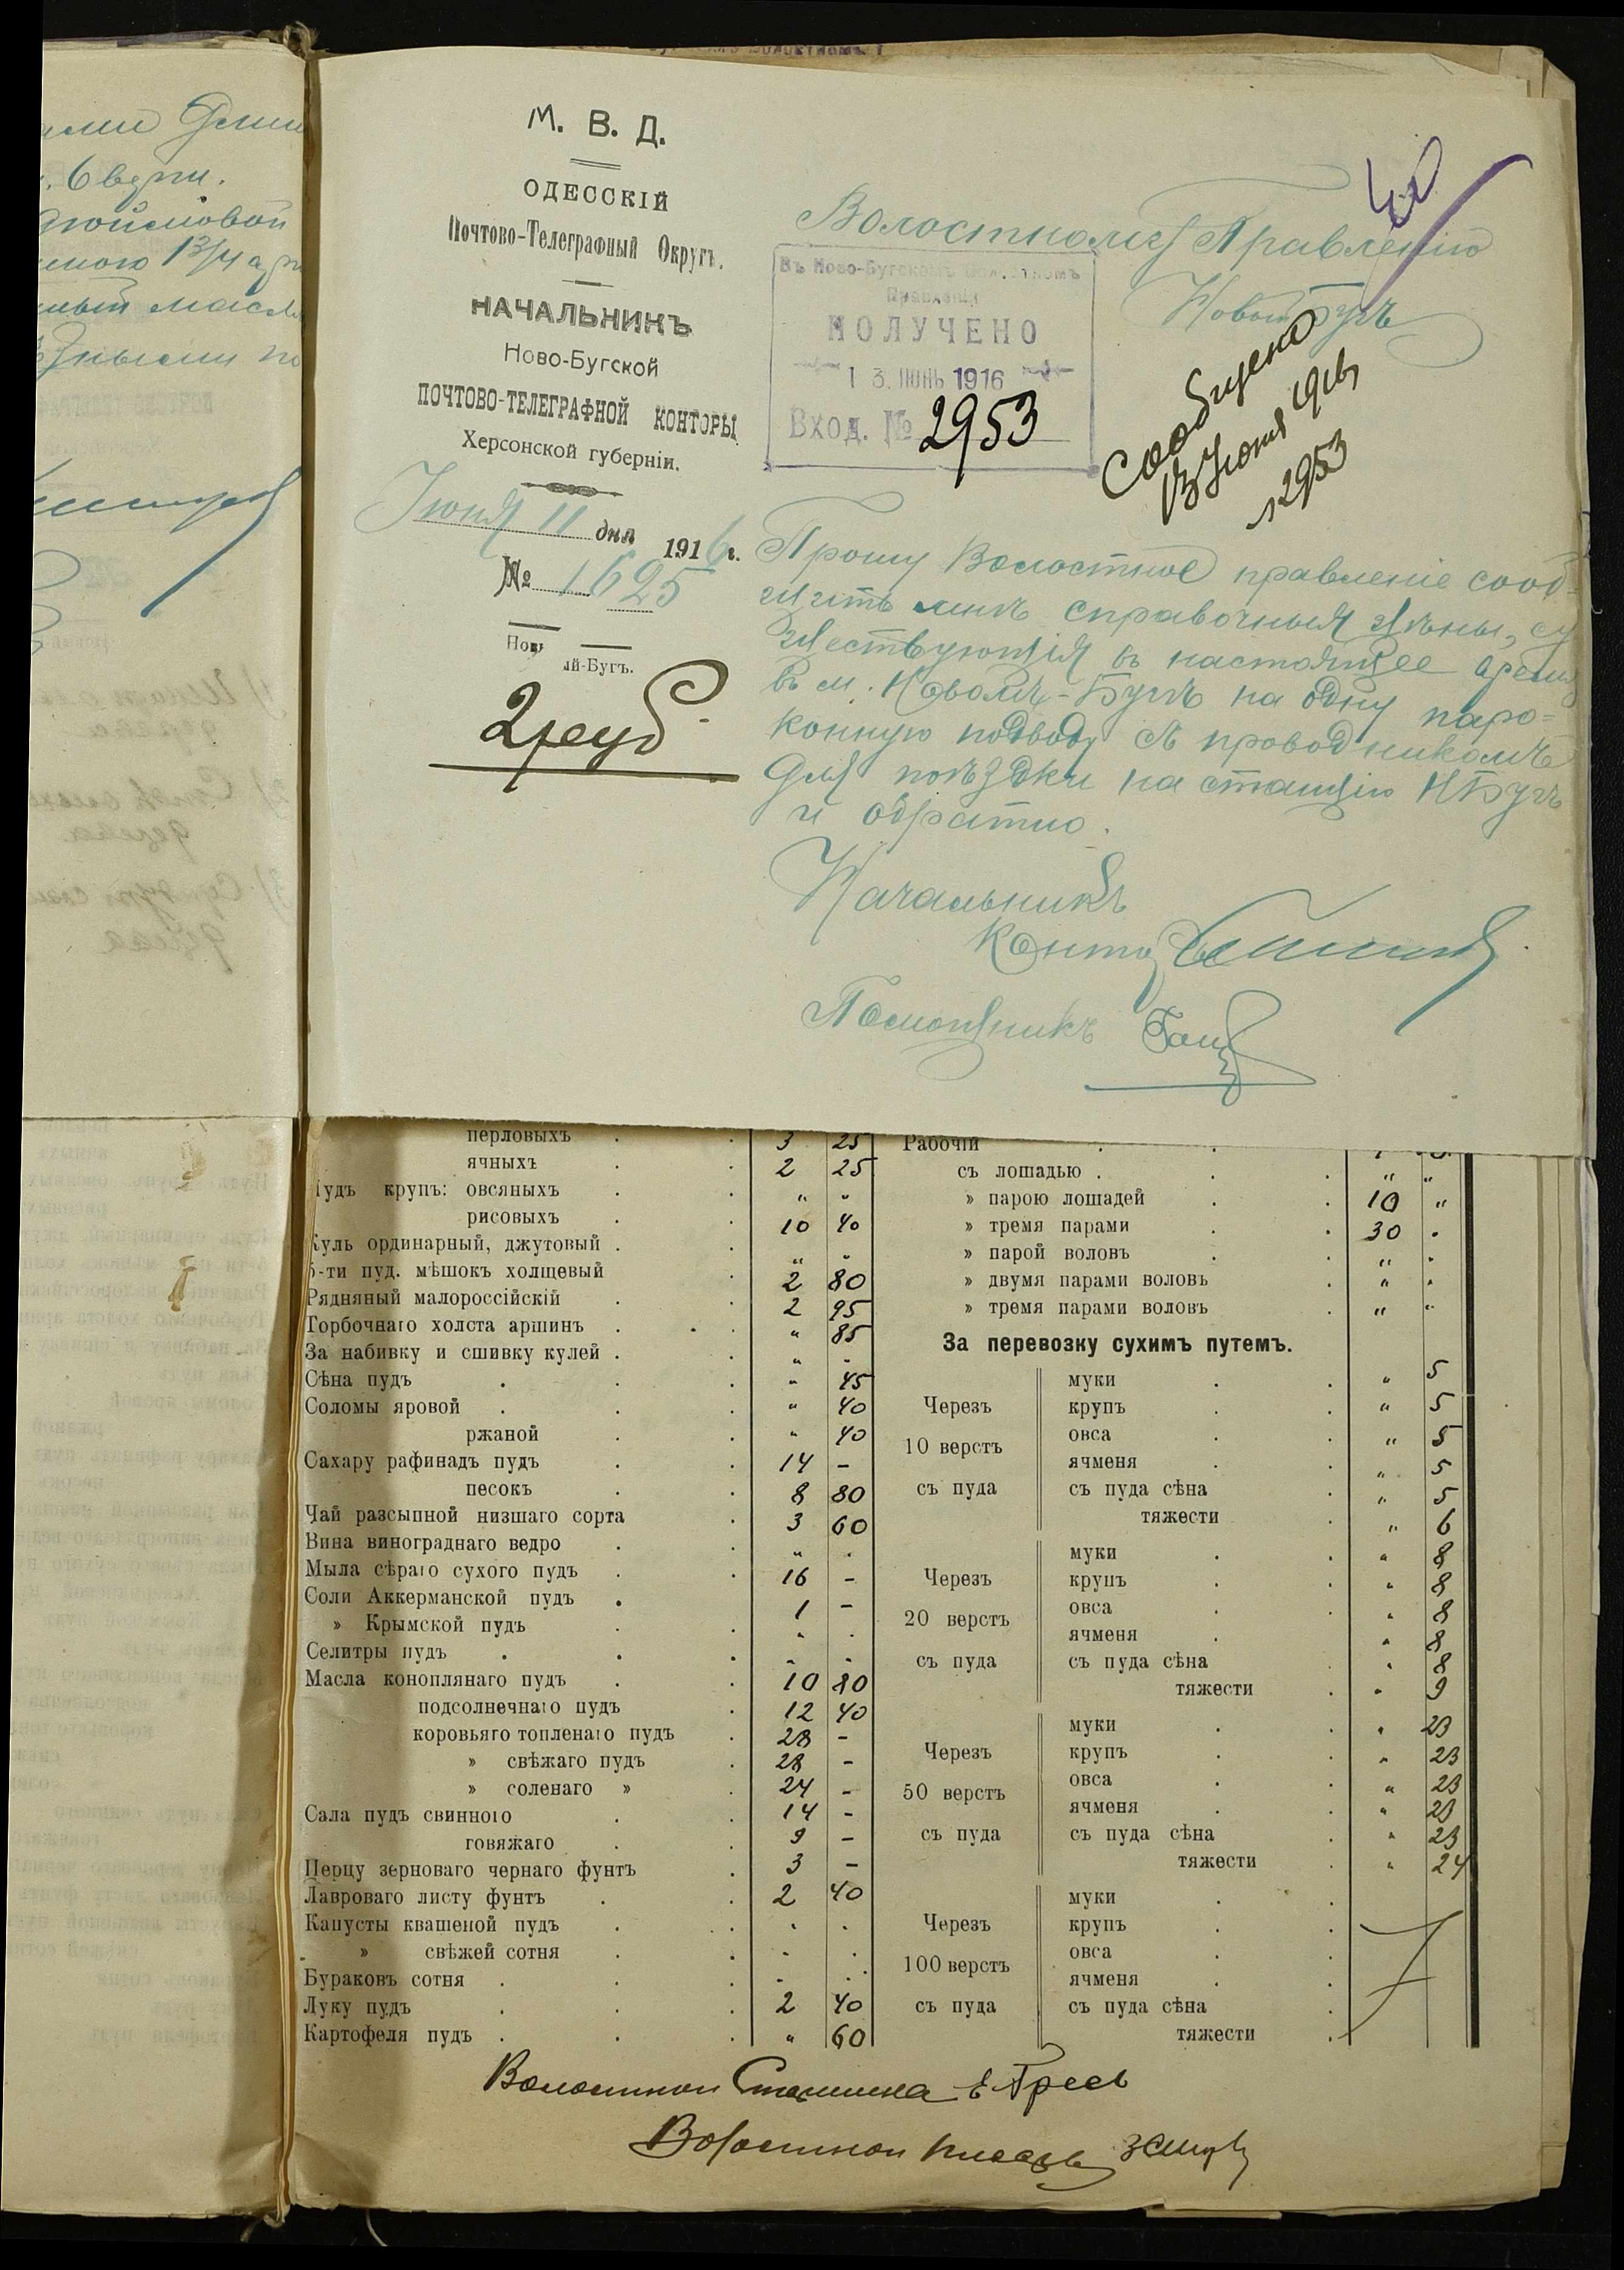 М. В. Д.
ОДЕССКІЙ
Почтово-Телеграфный Округъ.
НАЧАЛЬНИКЪ
Ново-Бугской
ПОЧТОВО-ТЕЛЕГРАФНОЙ КОНТОРЫ
Херсонской губерніи.
Іюня 11 дня 1916 г.
№ 1625
Новый-Бугъ.
2 руб
Волостному Правленію
Новый Бугъ
Въ Ново-Бугскомъ Волостномъ
Правленіи
ПОЛУЧЕНО
13. ІЮНЬ 1916
Вход. № 2953
Сообщено
13 Іюня 1916
№ 2953
Прошу Волостное правленіе сооб-
щить мнѣ справочныя цѣны, су
ществующія въ настоящее время
въ м. Новомъ-Бугѣ на одну паро-
конную подводу съ проводникомъ
для поѣздки на станцію НБугъ
и обратно.
Начальникъ
Конто
Помощникъ
перловыхъ . . 3 25
ячныхъ . . 2 25
Пудъ крупъ: овсяныхъ . . " "
рисовыхъ . . 10 40
Куль ординарный, джутовый . . " "
5-ти пуд. мѣшокъ холщевый . 2 80
Рядняный малороссійскій . . 2 95
Торбочнаго холста аршинъ . . " 85
За набивку и сшивку кулей . . " "
Сѣна пудъ . . . " 45
Соломы яровой . . . " 40
ржаной . . " 40
Сахару рафинадъ пудъ . . 14 –
песокъ . . 8 80
Чай разсыпной низшаго сорта . 3 60
Вина винограднаго ведро . . " "
Мыла сѣраго сухого пудъ . . 16 –
Соли Аккерманской пудъ . 1 –
» Крымской пудъ . . " "
Селитры пудъ . . . " "
Масла коноплянаго пудъ . . 10 80
подсолнечнаго пудъ . 12 40
коровьяго топленаго пудъ . 28 –
» свѣжаго пудъ . 28 –
» соленаго » . 24 –
Сала пудъ свинного . . 14 –
говяжаго . . 9 –
Перцу зерноваго чернаго фунтъ . 3 –
Лавроваго листу фунтъ . . 2 40
Капусты квашеной пудъ . . " "
» свѣжей сотня . . " "
Бураковъ сотня . . . " "
Луку пудъ . . . 2 40
Картофеля пудъ . . . " 60
Рабочій . .
съ лошадью . . . " "
» парою лошадей . . 10 "
» тремя парами . . 30 "
» парой воловъ . . " "
» двумя парами воловъ . " "
» тремя парами воловъ . " "
За перевозку сухимъ путемъ.
Черезъ
10 верстъ
съ пуда
муки . . " 5
крупъ . . " 5
овса . . " 5
ячменя . . " 5
съ пуда сѣна . " 5
тяжести . " 6
Черезъ
20 верстъ
съ пуда
муки . . " 8
крупъ . . " 8
овса . . " 8
ячменя . " 8
съ пуда сѣна . " 8
тяжести . " 9
Черезъ
50 верстъ
съ пуда
муки . . " 23
крупъ . . " 23
овса . . " 23
ячменя . . " 23
съ пуда сѣна . " 23
тяжести . " 24
Черезъ
100 верстъ
съ пуда
муки . .
крупъ . .
овса . .
ячменя . .
съ пуда сѣна .
тяжести .
Волостной Старшина
Волостной писарь